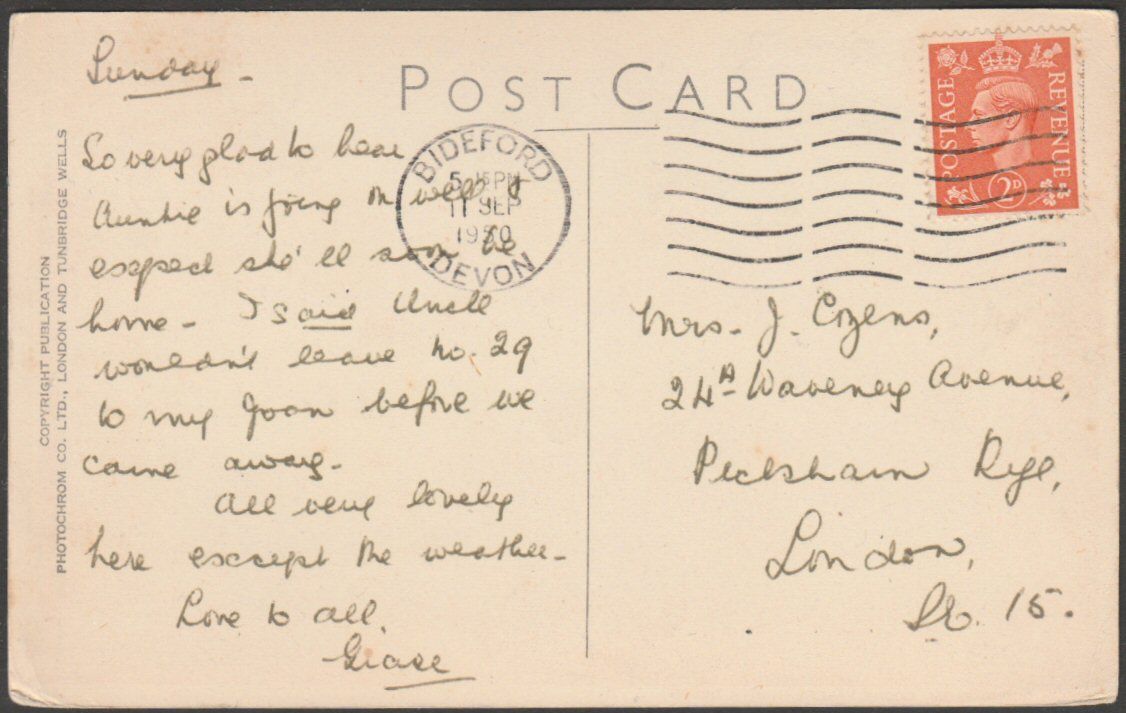 Sunday -
So very glad to hear
Auntie is going on well &
expect she'll soon be
home - I said Uncle
wouldn't leave No. 29
to my Joan before we
came away -
All very lovely
here except the weather -
Love to all,
POST CARD
BIDEFORD
5 15 PM
11 SEP
1950
DEVON
POSTAGE
REVENUE
2D
Mrs. J. Cozens,
24A Waveney Avenue,
Peckham Rye,
London,
15.
COPYRIGHT PUBLICATION
PHOTOCHROM CO. LTD., LONDON AND TUNBRIDGE WELLS